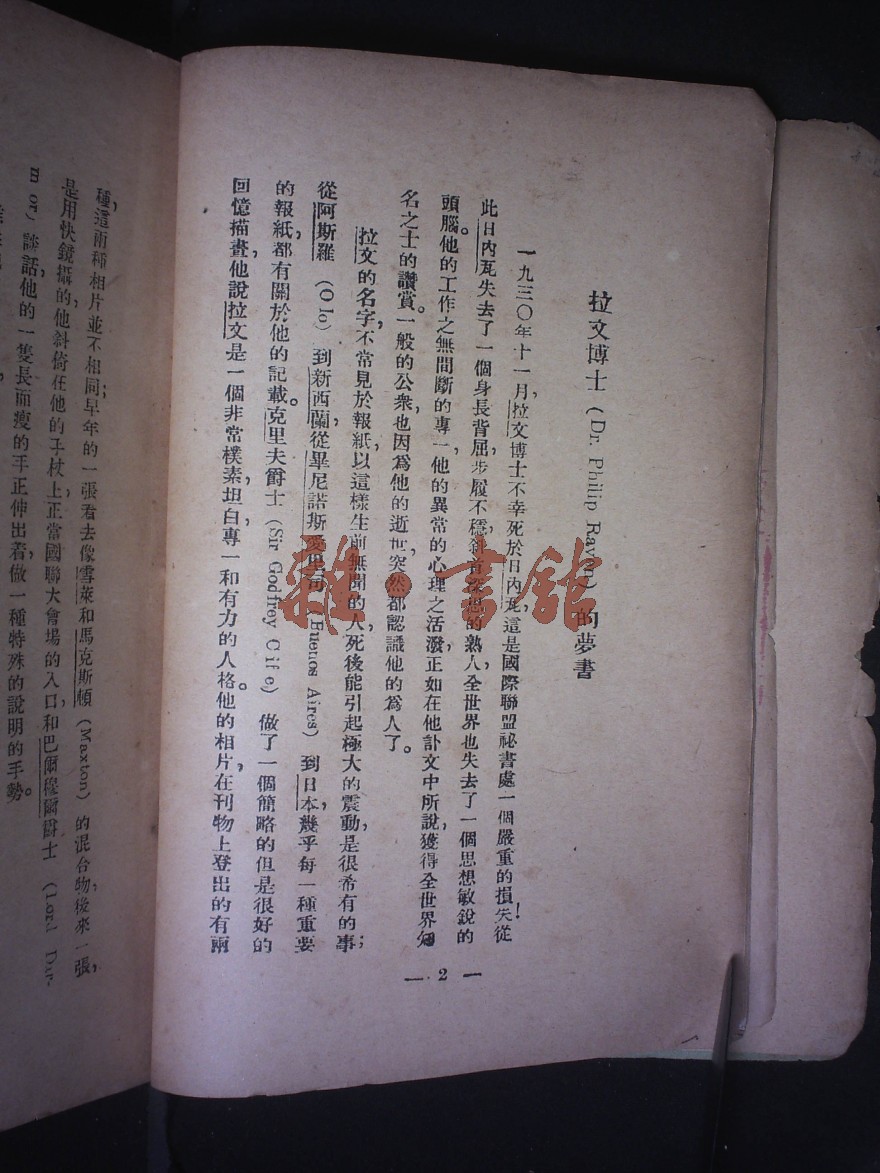 拉文博士 (Dr. Philip Raven) 的夢書
一九三〇年十一月,拉文博士不幸死於日內瓦,這是國際聯盟祕書處一個嚴重的損失!從
此日內瓦失去了一個身長背屈,步履不穩,斜首深思的熟人,全世界也失去了一個思想敏銳的
頭腦。他的工作之無間斷的專一,他的異常的心理之活潑,正如在他訃文中所說,獲得全世界知
名之士的讚賞。一般的公衆,也因爲他的逝世,突然都認識他的爲人了。
拉文的名字,不常見於報紙,以這樣生前無聞的人,死後能引起極大的震動,是很希有的事;
從阿斯羅 (Olo) 到新西蘭,從畢尼諾斯愛里司 (Buenos Aires) 到日本,幾乎每一種重要
的報紙都有關於他的記載。克里夫爵士 (Sir Godfrey Cliffe) 做了一個簡略的但是很好的
回憶描畫,他說拉文是一個非常樸素,坦白,專一和有力的人格。他的相片在刊物上登出的有兩
— 2 —
種,這兩種相片並不相同;早年的一張看去像雪萊和馬克斯頓 (Maxton) 的混合物,後來一張,
是用快鏡攝的,他斜倚在他的手杖上,正當國聯大會場的入口,和巴爾穆爾爵士 (Lord Par-
m or) 談話,他的一隻長而瘦的手正伸出着,做一種特殊的說明的手勢。
雜·書館